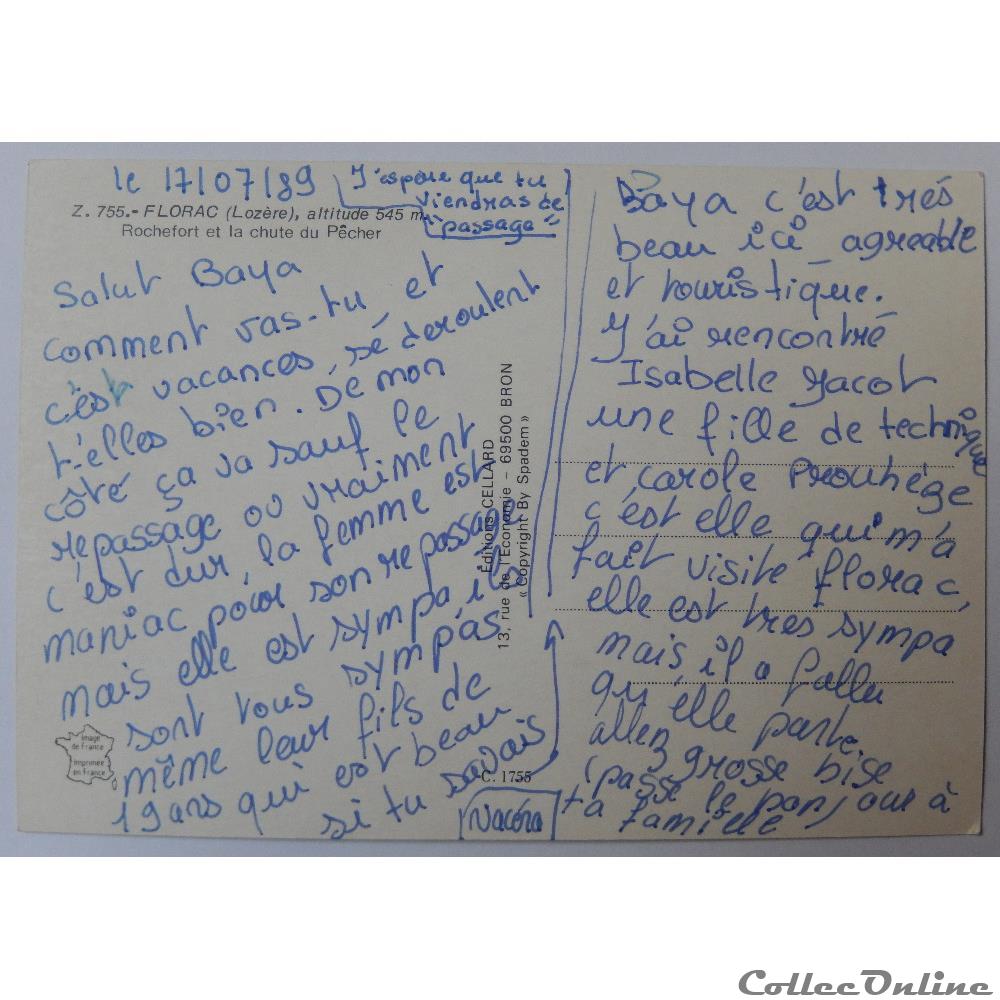 le 17/07/89
J'espère que tu
viendras de
"passage"
Z. 755.- FLORAC (Lozère), altitude 545 m.
Rochefort et la chute du Pêcher
Salut Baya
comment vas-tu et
c'est vacances, sé deroulent
t-elles bien. De mon
côté ça va sauf le
répassage où vraiment
c'est dur, la femme est
maniac pour son repassage
mais elle est sympa, ils
sont tous sympas
même leur fils de
19 ans qui est beau
si tu savais
Editions CELLARD
13, rue de l'Economie - 69500 BRON
« Copyright By Spadem »
Image
de France
Imprimée
en France
C. 1755
Baya c'est très
beau ici_ agreable
et touristique.
J'ai rencontré
Isabelle Jacot
une fille de technique
et carole Prouhège
c'est elle qui m'a
fait visite florac,
elle est tres sympa
mais il a fallu
qu'elle parte.
allez grosse bise
(passe le bonjour à
ta famille
Nacéra
CollecOnline